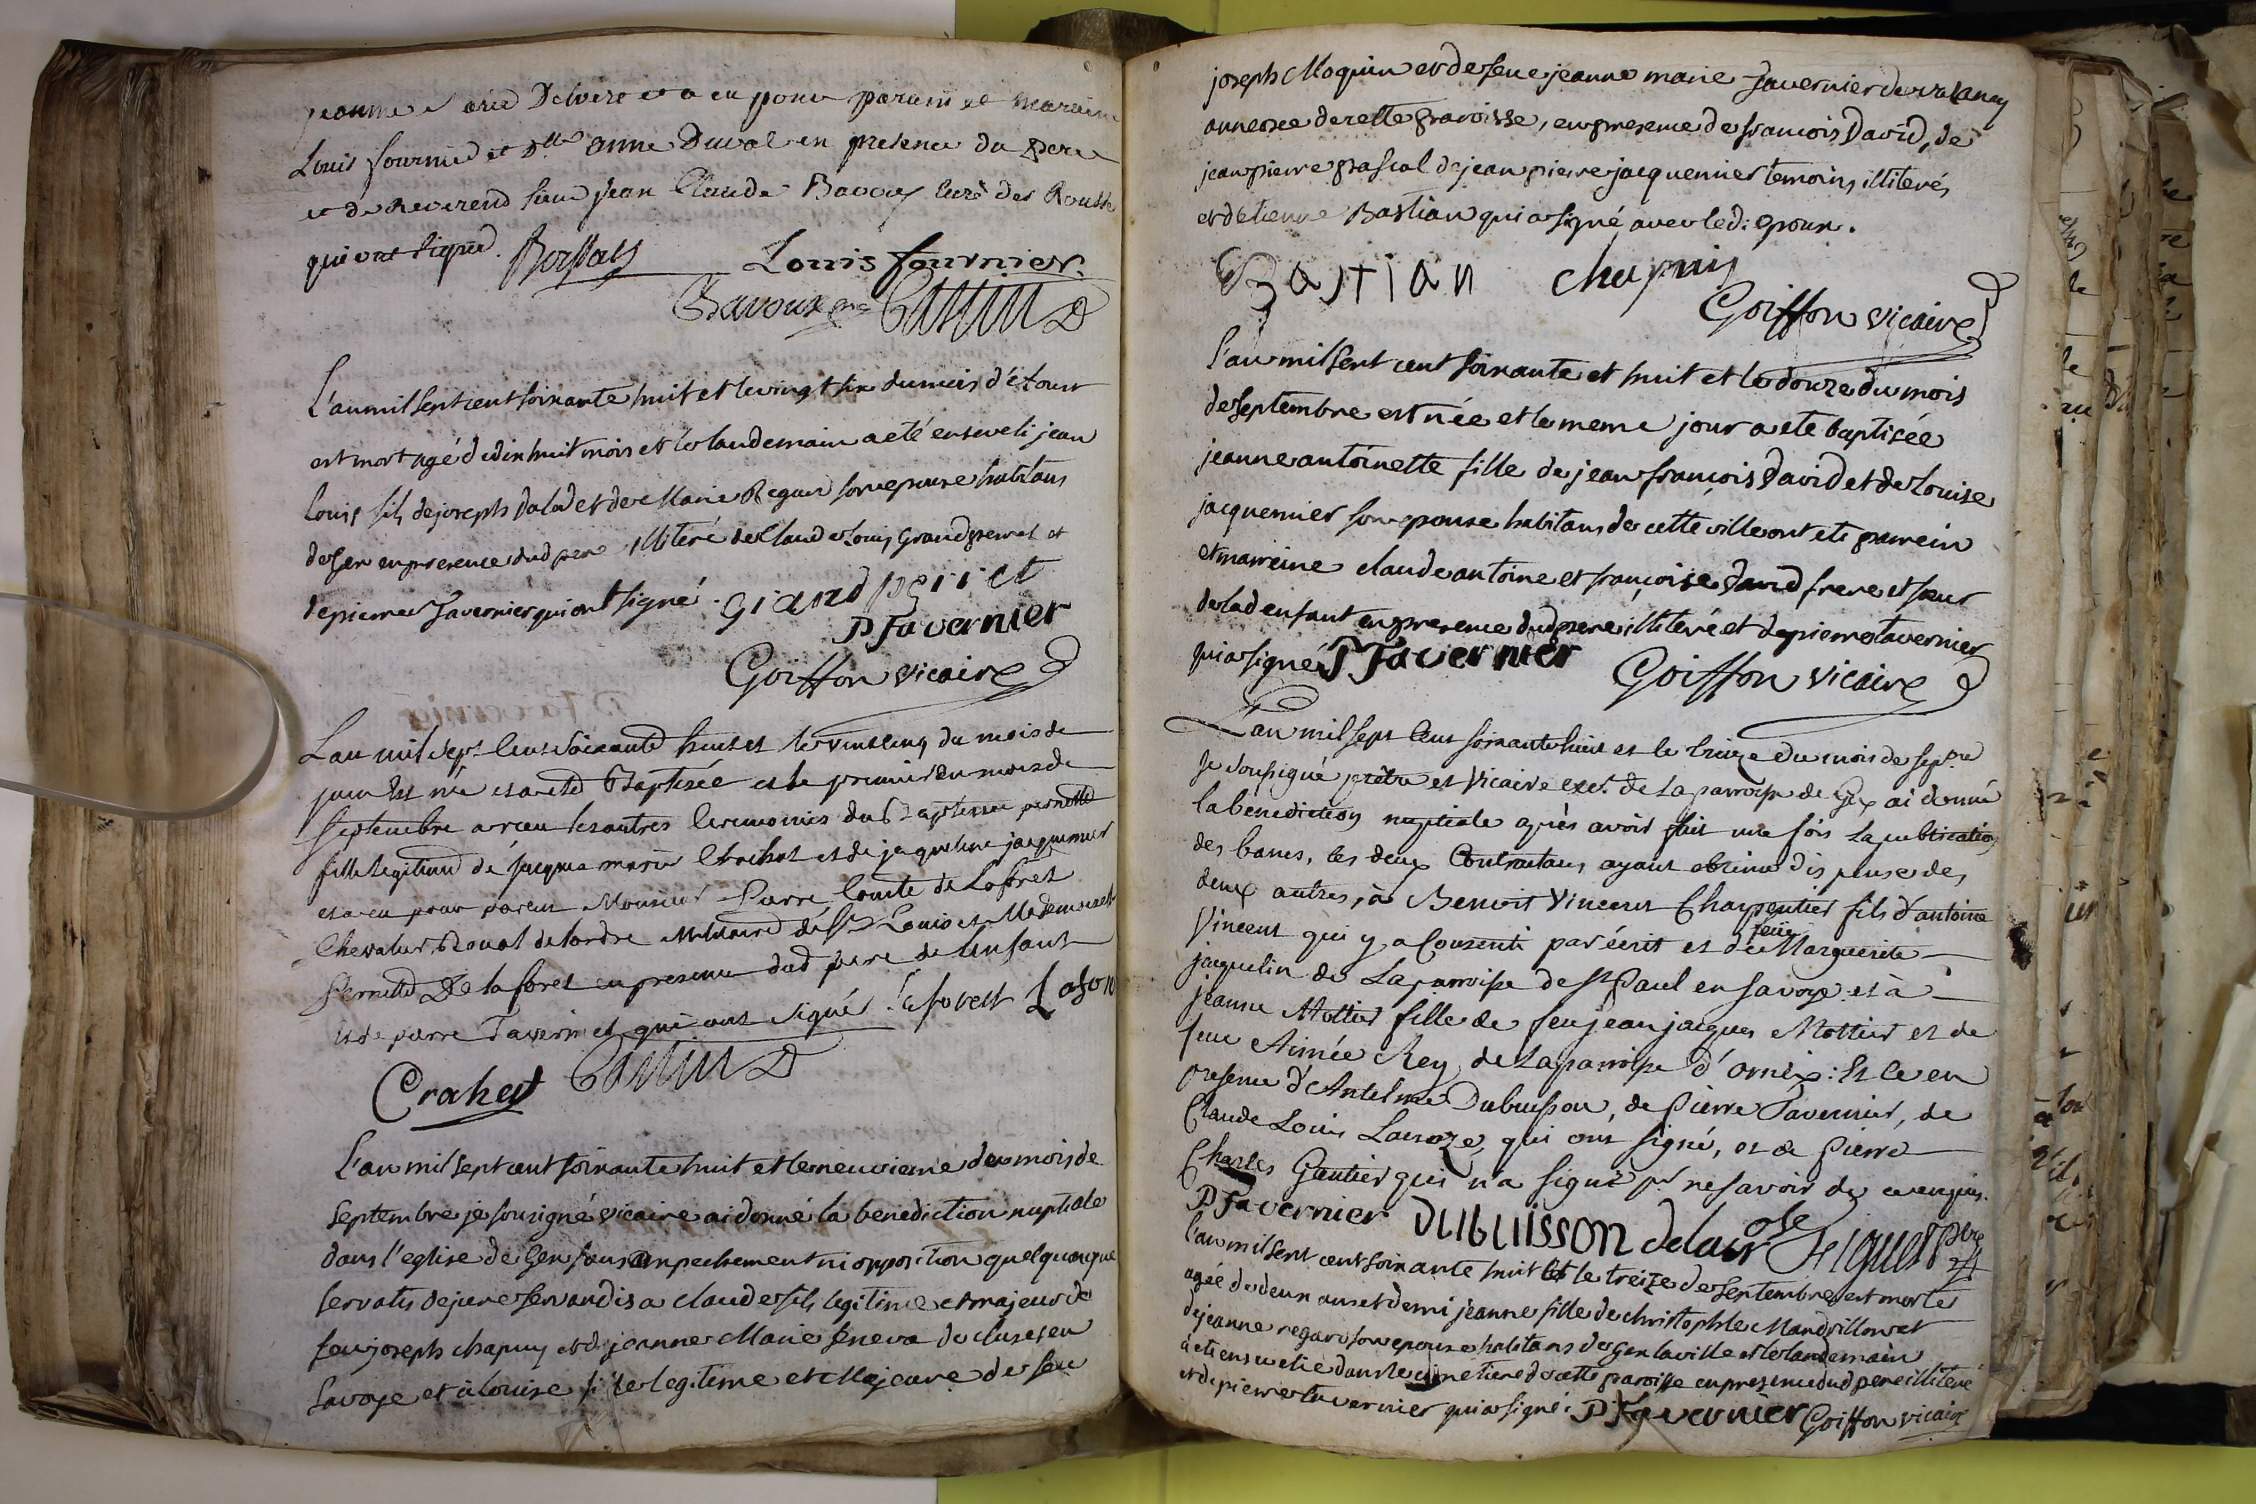 jeanne Delvere et a eu pour parain et maraine
Louis fournier et Dlle anne Duval en presence du pere
et de Reverend sieur jean Claude Bavoux curé des Rousse
qui ont signé.
Louis fournier
Bavoux
L'an mil sept cent soixante huit et le vingt six du mois d'Aoust
est mort agé de dix huit mois et le landemain a eté enseveli jean
Louis fils de joseph et de Marie Regard son epouse habitans
de Gex en presence dud pere illiteré de Claude Louis Grandperret et
de pierre Tavernier qui ont signé.
grandperret
P Tavernier
Goiffon vicaire
L'an mil sept cent soixante huit et le vint cinq du mois de
juin est née et a eté Baptisée et le premier du mois de
septembre a receu les autres ceremonies du Baptesme pernette
fille legitime de jacques marie Crochat et de jaqueline jacquemier
et a eu pour parein Monsieur Pierre Comte de Laforest
Chevalier Royal de lordre Militaire de St Louis et Mademoiselle
Pernette De la forest en presence dud pere de lenfant
et de pierre Tavernier qui ont signé. la forest
L'an mil sept cent soixante huit et le neuvieme du mois de
septembre je sousigné vicaire ai donné la benediction nuptiale
dans l'eglise de Gex sans empechement ni opposition quelquonque
servatis de jure servandis a claude fils legitime et majeur de
feu joseph chapuy et de jeanne Marie feneva de cluses en
Savoye et à louise fille legitime et Majeure de feu
joseph Moquin et de feue jeanne marie Tavernier de
annexée de cette paroisse, en presence de francois David, de
jean pierre pascal de jean pierre jacquemier temoins illiterés
et detienne Bastian qui a signé avec led: epoux.
Bastian chapuis
Goiffon vicaire
L'an mil sept cent soixante et huit et le douze du mois
de septembre est née et le meme jour a ete baptisée
jeanne antoinette fille de jean francois David et de Louise
jacquemier son epouse habitans de cette ville ont ete parrein
et marreine claude antoine et françoise David frere et seur
de lad enfant en presence dud pere illiteré et de pierre tavernier
qui a signé. P Tavernier Goiffon vicaire
L'an mil sept Cent soixante huit et le treize du mois de sepbre
Je Sousigné prêtre et Vicaire de La parroisse de Gex ai donné
la benediction nuptiale après avoir fait une fois La publication
des bancs, les deux Contractans ayant obtenu dispense des
deux autres, à Benoit Vincent Charpentier fils d'antoine
Vincent qui y a Consenti par écrit et de feüe Marguerite
jaquelin de La parroisse de St Paul en Savoye et à
jeanne Mottier fille de feu jean jacques Mottier et de
feue Aimée Rey de La parroisse d'ornex: Et ce en
presence d'Antelme Dubuisson, de Pierre Tavernier, de
Claude Louis Laroze, qui ont signé, et de Pierre
Charles Gautier qui n'a signé pr ne savoir de ce enquis.
P Tavernier DUBUISSON delarose
l'an mil sept cent soixante huit et le treize de septembre est morte
agée de deux ans et demi jeanne fille de christophle Mandrillon et
de jeanne regard son epouse habitans de Gex la ville et le landemain
a eté ensevelie dans le cimetiere de cette paroisse en presence dud pere illiteré
et de pierre tavernier qui a signé. P Tavernier Goiffon vicaire